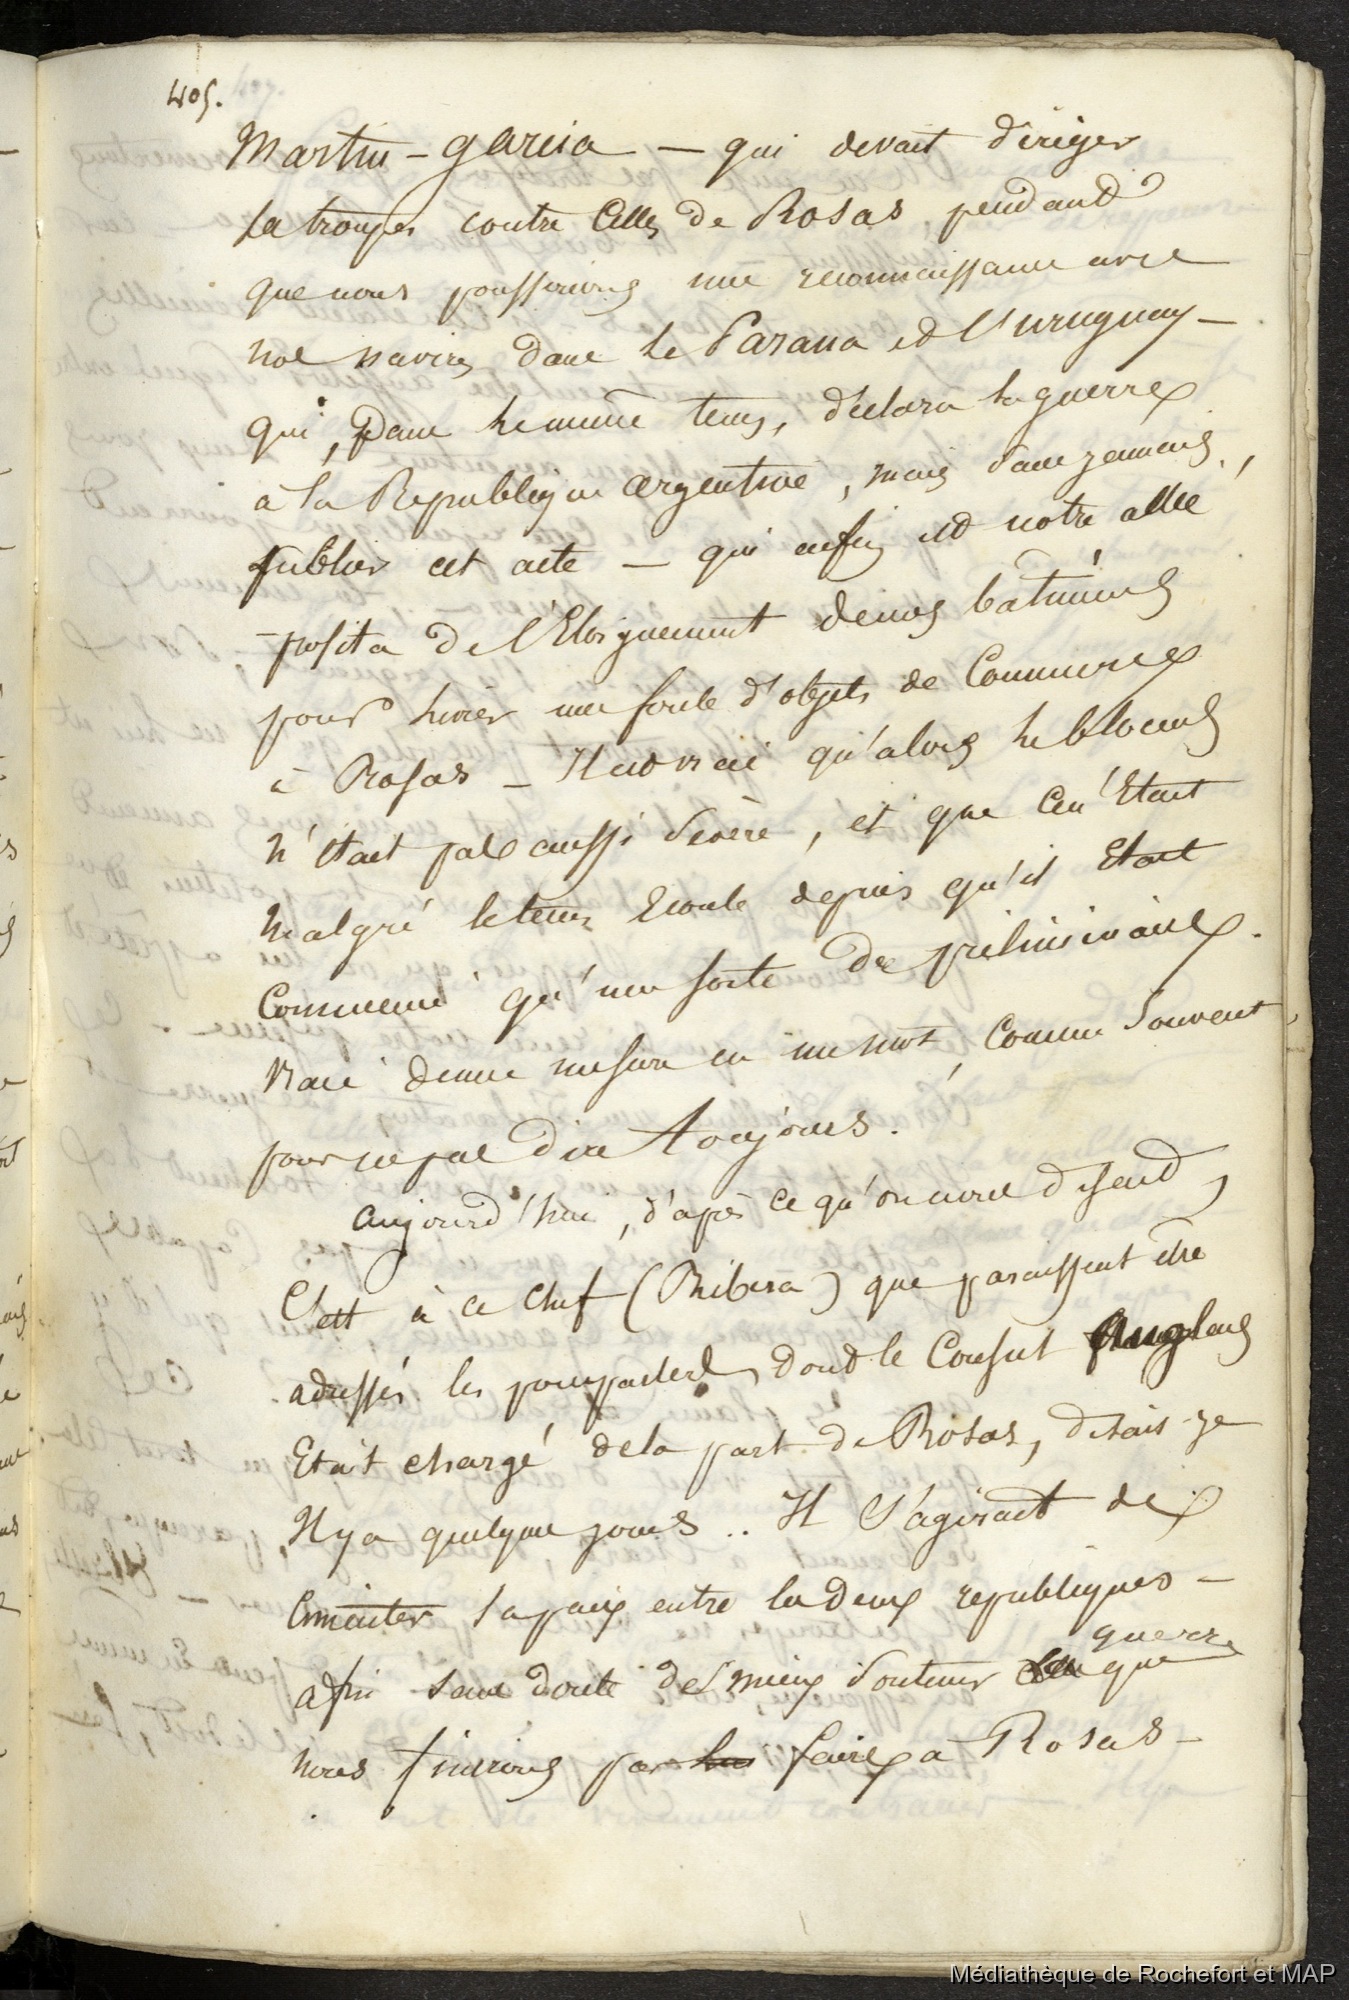 405.
Martin-garcia — qui devait diriger
sa troupes contre Celles de Rosas, pendant
que nous pousserions une reconnaissance avec
nos navires dans le Parana et l'uruguay —
qui, Dans le même tems, déclara la guerre
à la Republique argentine, mais sans jamais,
publier cet acte — qui enfin est notre allié
profita de l'Eloignement de nos batimens
pour livrer une foule d'objets de Commerce
à Rosas — Il est vrai qu'alors le blocus
n'était pas aussi sévère, et que Ceu'Etait
Malgré le tems Ecoulé depuis qu'il Etait
Commencé qu'une sorte de préliminaire.
Vraie demie mesure en un mot, Comme Souvent
pour ne pas dire toujours.
aujourd'hui, d'après ce qu'on nous disent,
C'est à ce Chef (Ribera) que paraissent être
adressés les pourparlers dont le Consul anglais
Etait chargé de la part de Rosas, disais-je
Il y a quelque jours .. Il S'agirait de
Cimenter la paix entre les deux republiques —
afin sans doute de mieux soutenir la guerre que
nous finirons par faire à Rosas —
Médiathèque de Rochefort et MAP